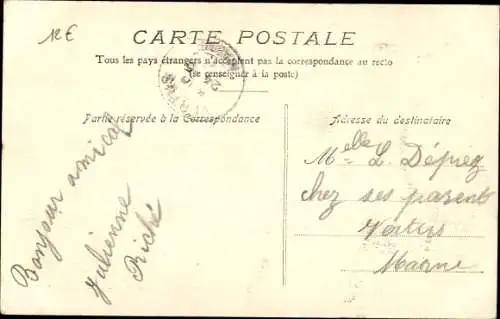 12€
CARTE POSTALE
Tous les pays étrangers n'acceptent pas la correspondance au recto
(se renseigner à la poste)
Partie réservée à la Correspondance
Adresse du destinataire
Bonjour amical
Julienne
Riché
Melle L. Dépiez
chez ses parents
Marne